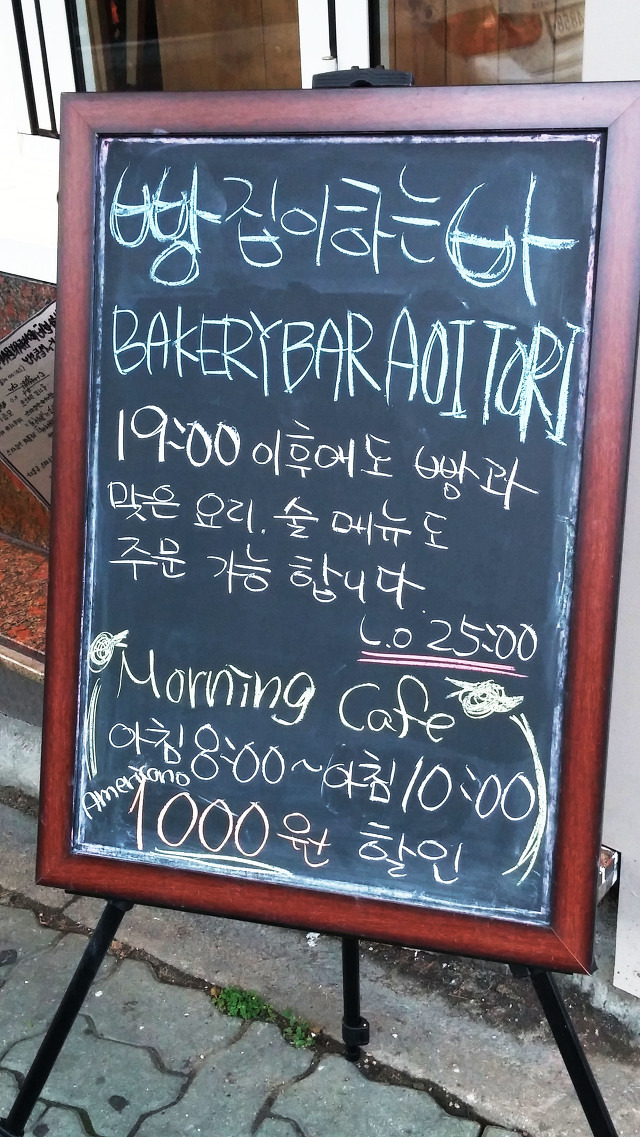 빵집이하는 바
BAKERY BAR AOITORI
19:00 이후에도 빵과
맞은 요리. 술 메뉴도
주문 가능 합니다.
L.O 25:00
Morning Cafe
아침 8:00~아침 10:00
Americano
1000원 할인